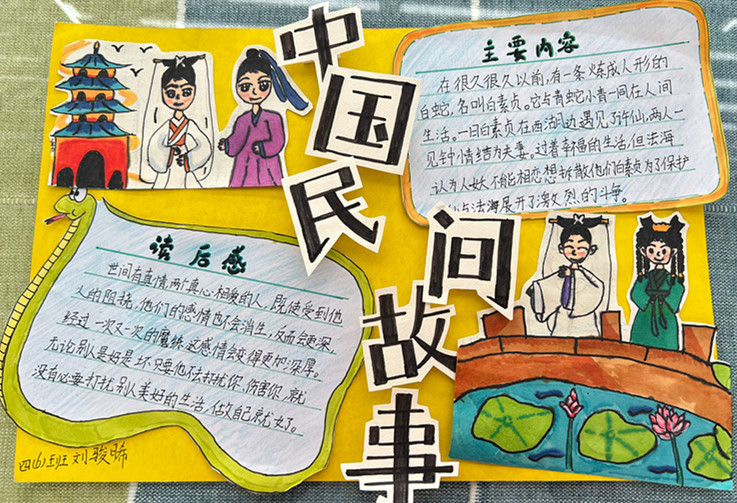 中国民间故事
主要内容
在很久很久以前,有一条炼成人形的
白蛇,名叫白素贞。它与青蛇小青一同在人间
生活。一日白素贞在西湖边遇见了许仙,两人一
见钟情结为夫妻。过着幸福的生活,但法海
认为人妖不能相恋想拆散他们白素贞为了保护
与法海展开了激烈的斗争。
读后感
世间有真情,两个真心相爱的人,既使受到他
人的阻挠,他们的感情也不会消失,反而会更深,
经过一次又一次的磨练这感情会变得更加深厚。
无论别人是好是坏只要他不去打扰你,伤害你,就
没有必要打扰别人美好的生活,做自己就好了。
四(6)班刘骏晞